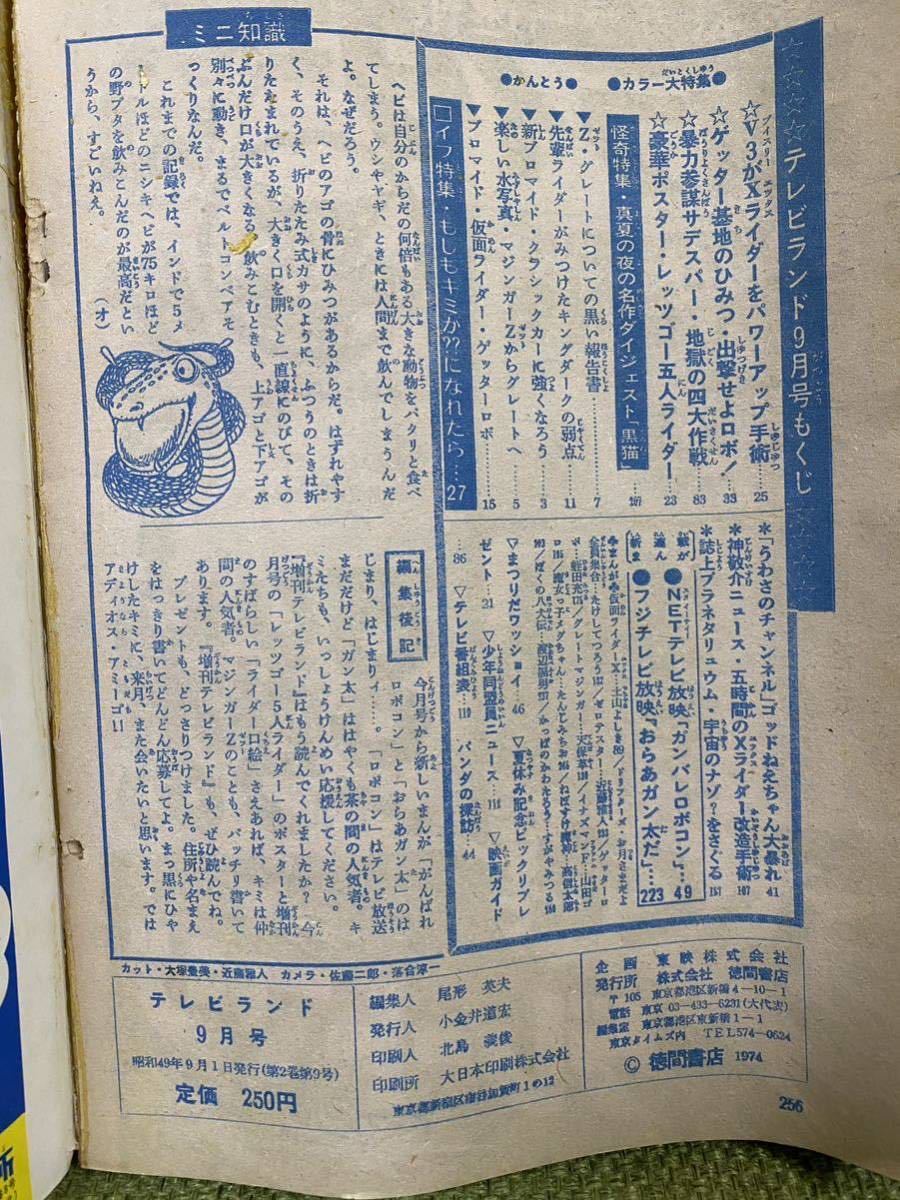 ☆☆☆☆テレビランド9月号もくじ
●カラー大特集●
☆V3がXライダーをパワーアップ手術…25
☆ゲッター基地のひみつ・出撃せよロボ!…33
☆暴力参謀サデスパー・地獄の四大作戦…83
☆豪華ポスター・レッツゴー五人ライダー…23
怪奇特集・真夏の夜の名作ダイジェスト「黒猫」…197
●かんとう●
▼Z・グレートについての黒い報告書…7
▼先輩ライダーがみつけたキングダークの弱点…11
▼新プロマイド・クラシックカーに強くなろう…3
▼楽しい水写真・マジンガーZからグレートへ…5
▼プロマイド・仮面ライダー・ゲッターロボ…15
□イフ特集・もしもキミが??になれたら…27
*「うわさのチャンネル」ゴッドねえちゃん大暴れ 41
*神敬介ニュース・五時間のXライダー改造手術 107
*誌上プラネタリウム・宇宙のナゾ?をさぐる 157
●NETテレビ放映「ガンバレロボコン」…49
●フジテレビ放映「おらあガン太だ」…223
▽まつりだワッショイ 46 ▽夏休み記念ビックリプレ
ゼント…21 ▽少年同盟員ニュース…115 ▽映画ガイド
…86 ▽テレビ番組表…119 パンダの探訪…44
ミニ知識
ヘビは自分のからだの何倍もある大きな動物をパクリと食べ
てしまう。ウシやヤギ、ときには人間まで飲んでしまうんだ
よ。なぜだろう。
それは、ヘビのアゴの骨にひみつがあるからだ。はずれやす
く、そのうえ、折りたたみ式カサのように、ふつうのときは折
りたたまれているが、大きく口を開くと一直線にのびて、その
ぶんだけ口が大きくなる。飲みこむときも、上アゴと下アゴが
別々に動き、まるでベルトコンベアそ
っくりなんだ。
これまでの記録では、インドで5メ
ートルほどのニシキヘビが75キロほど
の野ブタを飲みこんだのが最高だとい
うから、すごいねえ。
(オ)
編集後記
今月号から新しいまんが「がんばれ
ロボコン」と「おらあガン太」のは
じまり、はじまりィ……。「ロボコン」はテレビ放送
まだだけど「ガン太」ははやくも茶の間の人気者。キ
ミたちも、いっしょうけんめい応援してください。
『増刊テレビランド』はもう読んでくれましたか? 今
月号の「レッツゴー5人ライダー」のポスターと増刊
のすばらしい「ライダー口絵」さえあれば、キミは仲
間の人気者。マジンガーZのことも、バッチリ書いて
あります。『増刊テレビランド』も、ぜひ読んでね。
プレゼントも、どっさりつけました。住所や名まえ
をはっきり書いてどんどん応募してよ。まっ黒にひや
けしたキミに、来月、また会いたいと思います。では
アディオス・アミーゴ!!
カット・大塚豊美・近藤雅人 カメラ・佐藤二郎・落合淳一
テレビランド
9月号
昭和49年9月1日発行(第2巻第9号)
定価 250円
編集人 尾形 英夫
発行人 小金井道宏
印刷人 北島 義俊
印刷所 大日本印刷株式会社
東京都新宿区市谷加賀町1の12
企画 東映株式会社
発行所 株式会社 徳間書店
〒105 東京都港区新橋4-10-1
電話 東京 03-433-6231(大代表)
編集室 東京都港区東新橋1-1
東京タイムズ内 TEL574-0624
© 徳間書店 1974
256